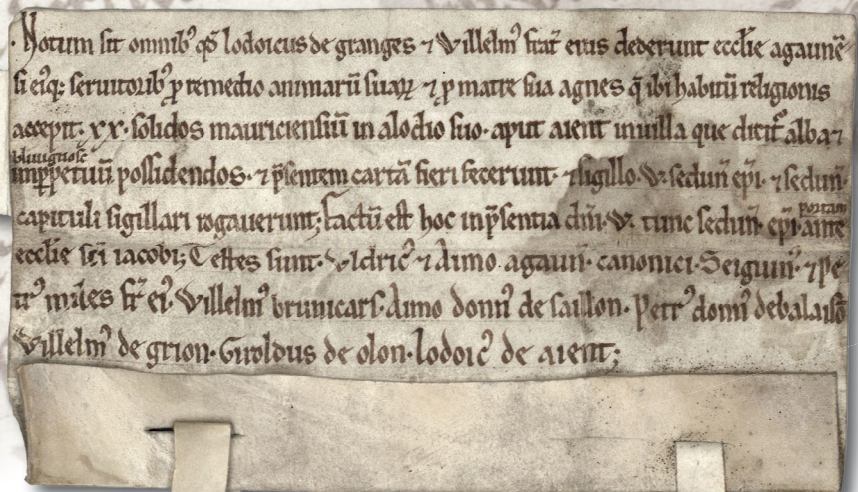 · Notum sit omnibꝰ qđ lodoicus de granges ⁊ Willelmꝰ frat̃ eius dederunt ecclie agaunē
si eiꝰq; seruitoribꝰ ꝓ remedio animarū suaꝝ ⁊ ꝓ matre sua agnes q̄ ibi habitū religionis
accepit· xx· solidos mauriciensiū in alodio suo· aput aient in uilla que dicit᷑ alba ⁊
imꝑpetuū possidendos· ⁊ p̄sentem cartā fieri fecerunt· ⁊ sigillo· W· sedun̄ ep̄i· ⁊ sedun̄·
capituli sigillari rogauerunt; factū est hoc in p̄sentia dn̄i· W· tunc sedun̄· ep̄i· ante
portam
ecclie sc̄i iacobi; Testes sunt· Vldricꝰ ⁊ Aimo agaun̄· canonici· Seiguin̄· ⁊ pe
trꝰ miles fr̄ eiꝰ· Willelmꝰ brunicars· Aimo donnꝰ de saillon· Petrꝰ donnꝰ de balaisō
Willelmꝰ de grion· Giroldus de olon· lodoicꝰ de aient;